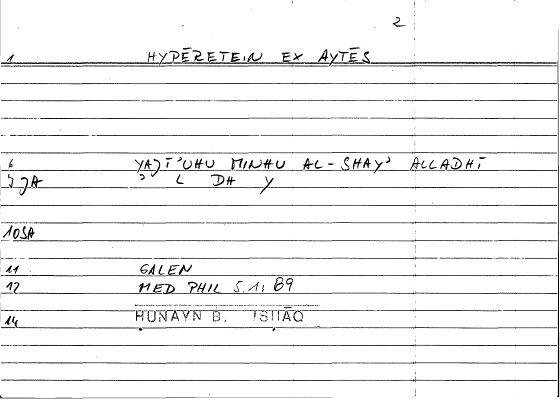 2
1 HYPĒRETEIN EX AYTĒS
6 YAJĪ'UHU MINHU AL-SHAY' ALLADHĪ
5 JA ' L DH Y
10 SA
11 GALEN
12 MED PHIL 5.1; 89
14 HUNAYN B. ISHĀQ